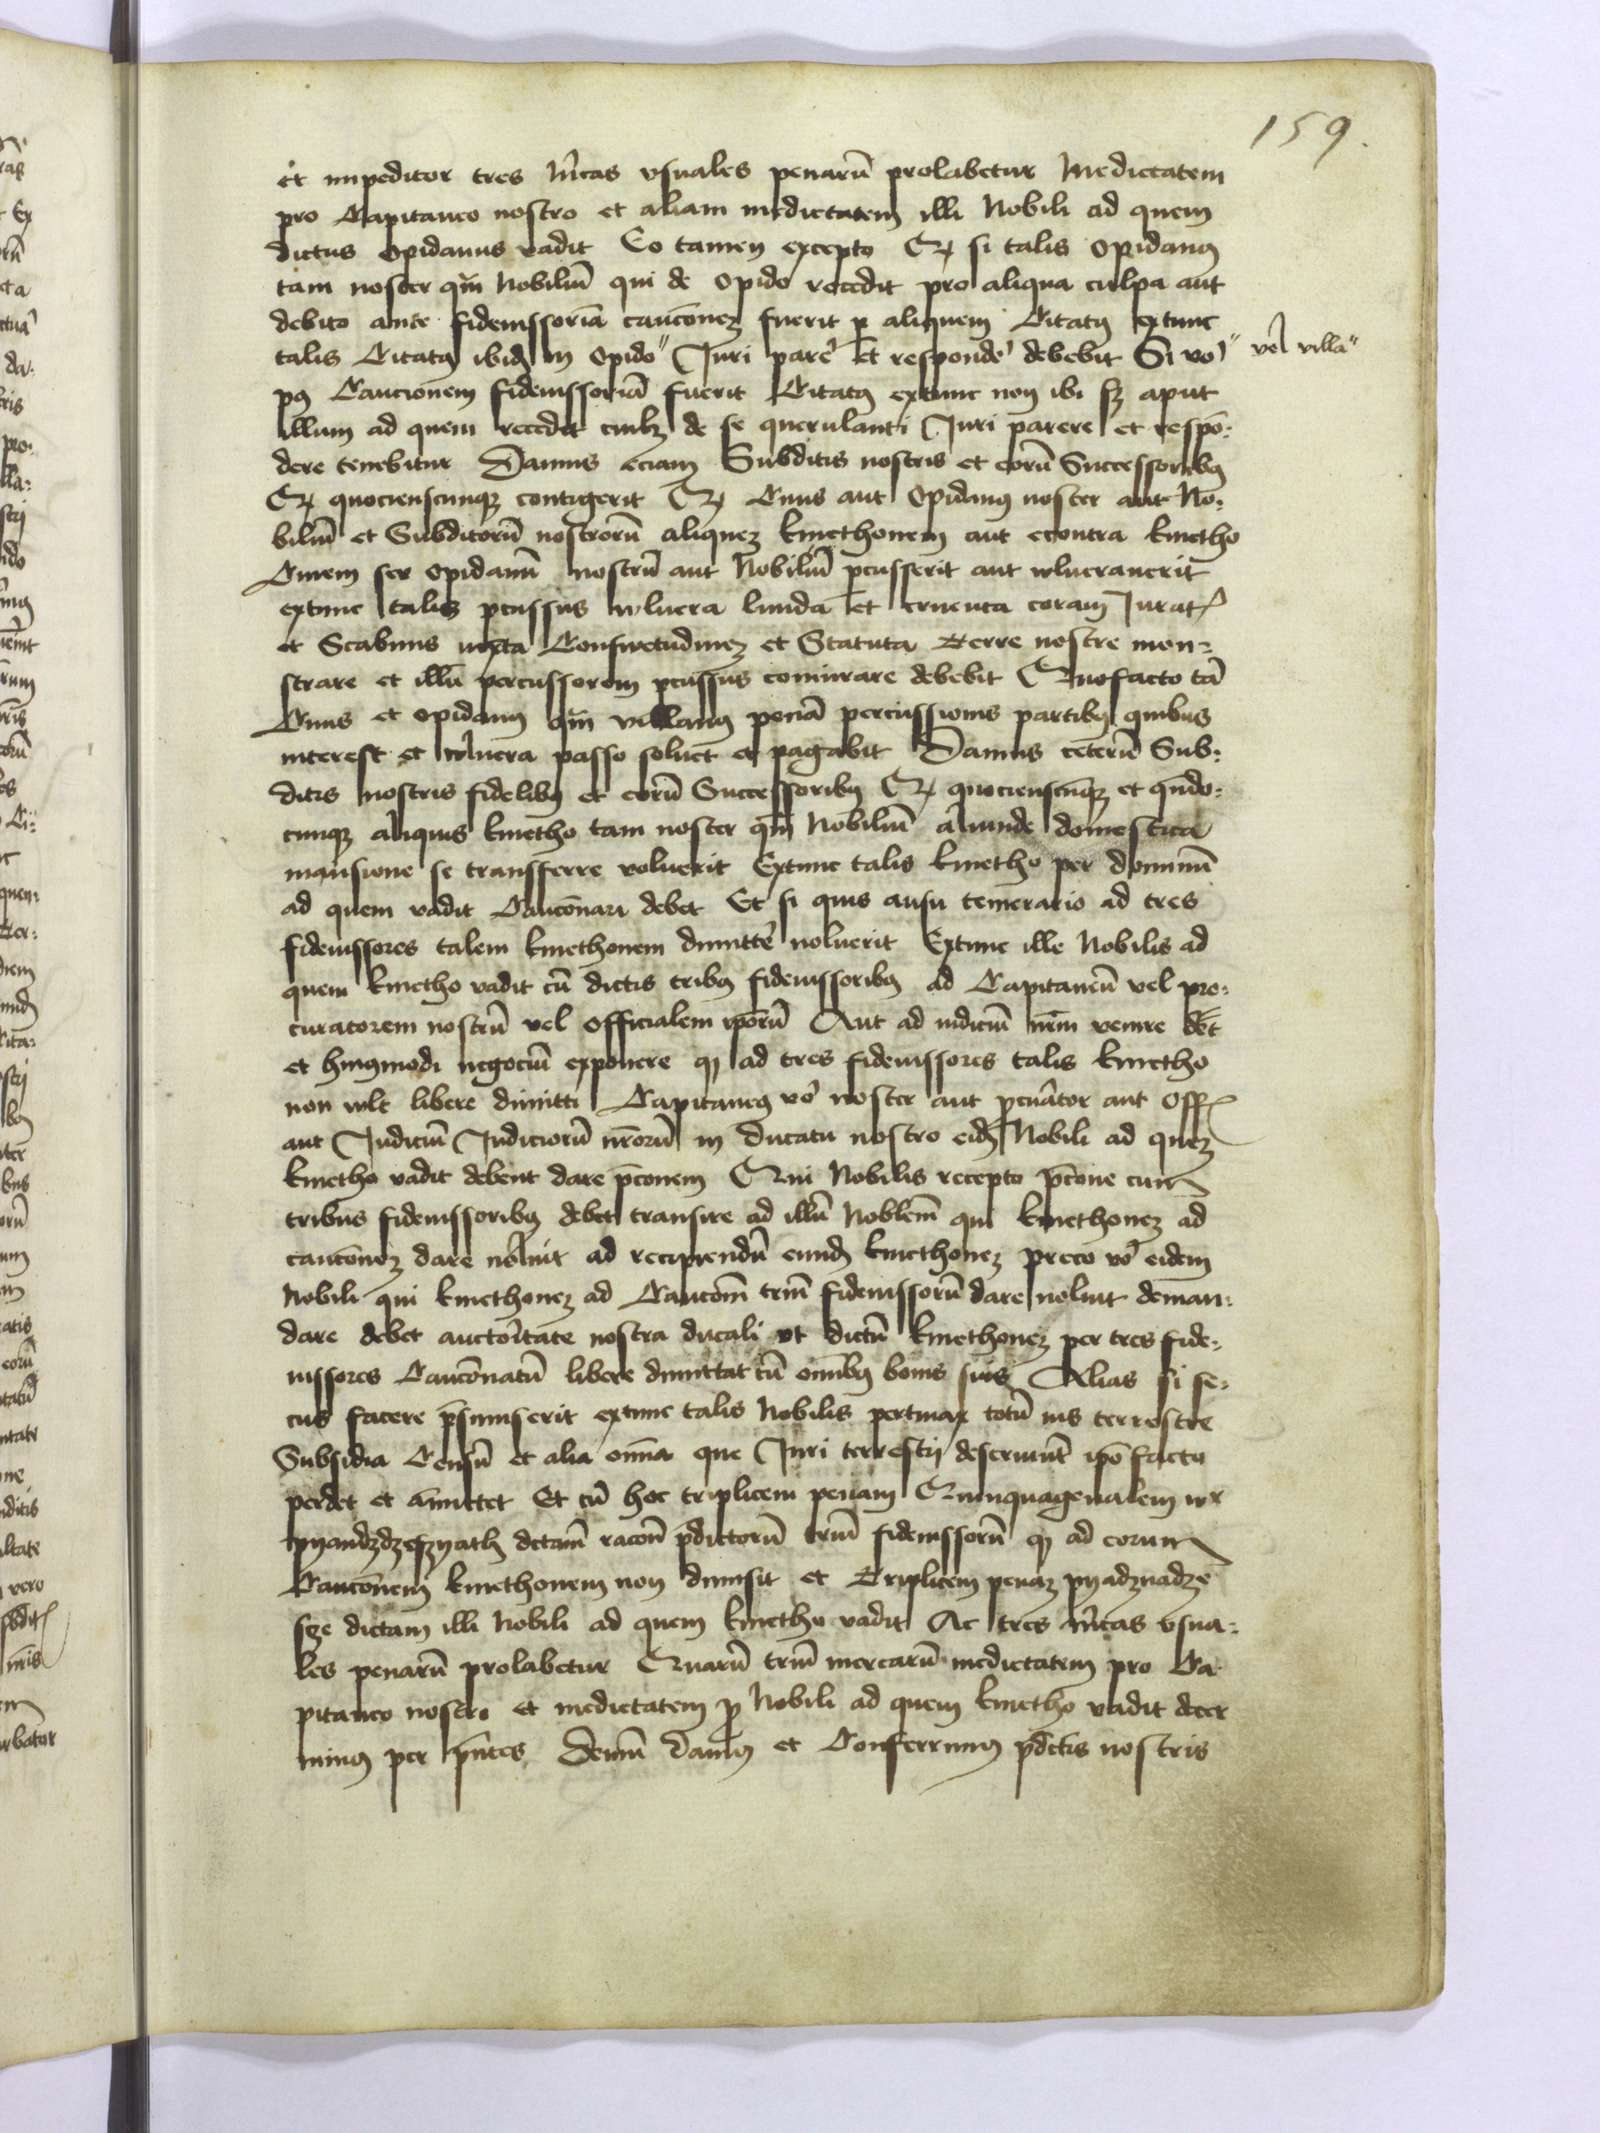 159.
et impeditor tres mͬcas vsuales penarū prolabetur Medietatem
pro Capitaneo nostro et aliam medietatem illi Nobili ad quem
dictus Opidanus vadit Eo tamen excepto Qꝫ si talis Opidanꝰ
tam noster qm̄ Nobiliū qui de Opido recedit pro aliqua culpa aut
debito ante fideiussoriā caucōneꝫ fuerit ꝑ aliquem Citatꝰ extunc
talis Citatꝰ ibidꝫ in Opido" Juri parē et respondē debebit Si vo͗ " vel villa"
pꝰ Caucionem fideiussoriā fuerit Citatꝰ extunc non ibi sꝫ aput
illum ad quem recedet cuilꝫ de se querulanti Juri parere et respō-
dere tenebitur Damus eciam Subditis nostris et eorū Successoribꝰ
Qꝫ quocienscunqꝫ contigerit Qꝫ Ciuis aut Opidanꝰ noster aut No-
biliū et Subditorū nostrorū aliqueꝫ kmethonem aut econtra kmetho
Ciuem seu Opidanū nostrū aut Nobiliū ꝑcusserit aut wlnerauerit
extunc talis ꝑcussus wlnera liuida et cruenta coram Juratꝭ
et Scabinis iuxta Consuetudineꝫ et Statuta Terre nostre mon-
strare et illū percussorem ꝑcussus coniurare debebit Quofacto tā
Ciuis et opidanꝰ qm̄ villanꝰ penā percussionis partibꝰ quibus
interest et wlnera passo soluet et pagabit Damus ceterū Sub-
ditis nostris fidelibꝰ et eorū Successoribꝰ Qꝫ quocienscūqꝫ et qn̄do-
cunqꝫ aliquis kmetho tam noster qm̄ Nobiliū aliunde domestica
mansione se transferre voluerit Extunc talis kmetho per dominū
ad quem vadit Caucōnari debet Et si quis ausu temerario ad tres
fideiussores talem kmethonem dimittē noluerit Extunc ille Nobilis ad
quem kmetho vadit cū dictis tribꝰ fideiussoribꝰ ad Capitaneū vel pro-
curatorem nostrū vel Officialem ip̄orū Aut ad iudiciū nr̄m venire dbt̄
et hmꝰmodi negociū exponere qꝫ ad tres fideiussores talis kmetho
non wlt libere dimitti Capitaneꝰ vo͗ noster aut ꝓcuātor aut Offꝭ
aut Judiciū Judiciorū nr̄orū in Ducatu nostro eidꝫ Nobili ad queꝫ
kmetho vadit debent dare p̄conem Qui Nobilis recepto p̄cone cum
tribus fideiussoribꝰ debet transire ad illū Noblem̄ qui kmethoneꝫ ad
caucōneꝫ dare noluit ad recipiendū eundꝫ kmethoneꝫ preco vo͗ eidem
Nobili qui kmethoneꝫ ad Caucōm̄ triū fideiussorū dare noluit deman-
dare debet auctoritate nostra ducali vt dictū kmethoneꝫ per tres fide-
iussores Caucōnatū libere dimittat cū om̄ibꝰ bonis suis Alias si se-
cus facere p̄sumserit extunc talis Nobilis pertinax totū ius terrestre
Subsidia Censū et alia om̄ia que Juri terrestri deseruiūt ip̄o facto
perdet et amittet Et cū hoc triplicem penam Quinquagenalem wr
pyandzdzeszyath dctam̄ racōn p̄dictorū triū fideiussorū qꝫ ad eorum
Caucōnem kmethonem non dimisit et Triplicem penaꝫ pyadznadze
sze dictam illi Nobili ad quem kmetho vadit Ac tres mͬcas vsua-
les penarū prolabetur Quarū triū mercarū medietatem pro Ca-
pitaneo nostro et medietatem ꝓ Nobili ad quem kmetho vadit decer
nimꝰ per p̄ntes Demū Damꝰ et Conferrimꝰ p̄dctis nostris